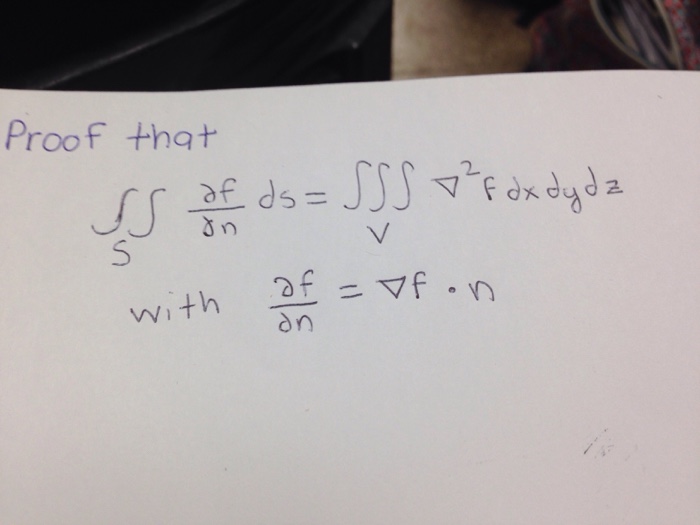 Proof that
∬_S ∂f/∂n ds = ∭_V ∇²f dx dy dz
with ∂f/∂n = ∇f · n